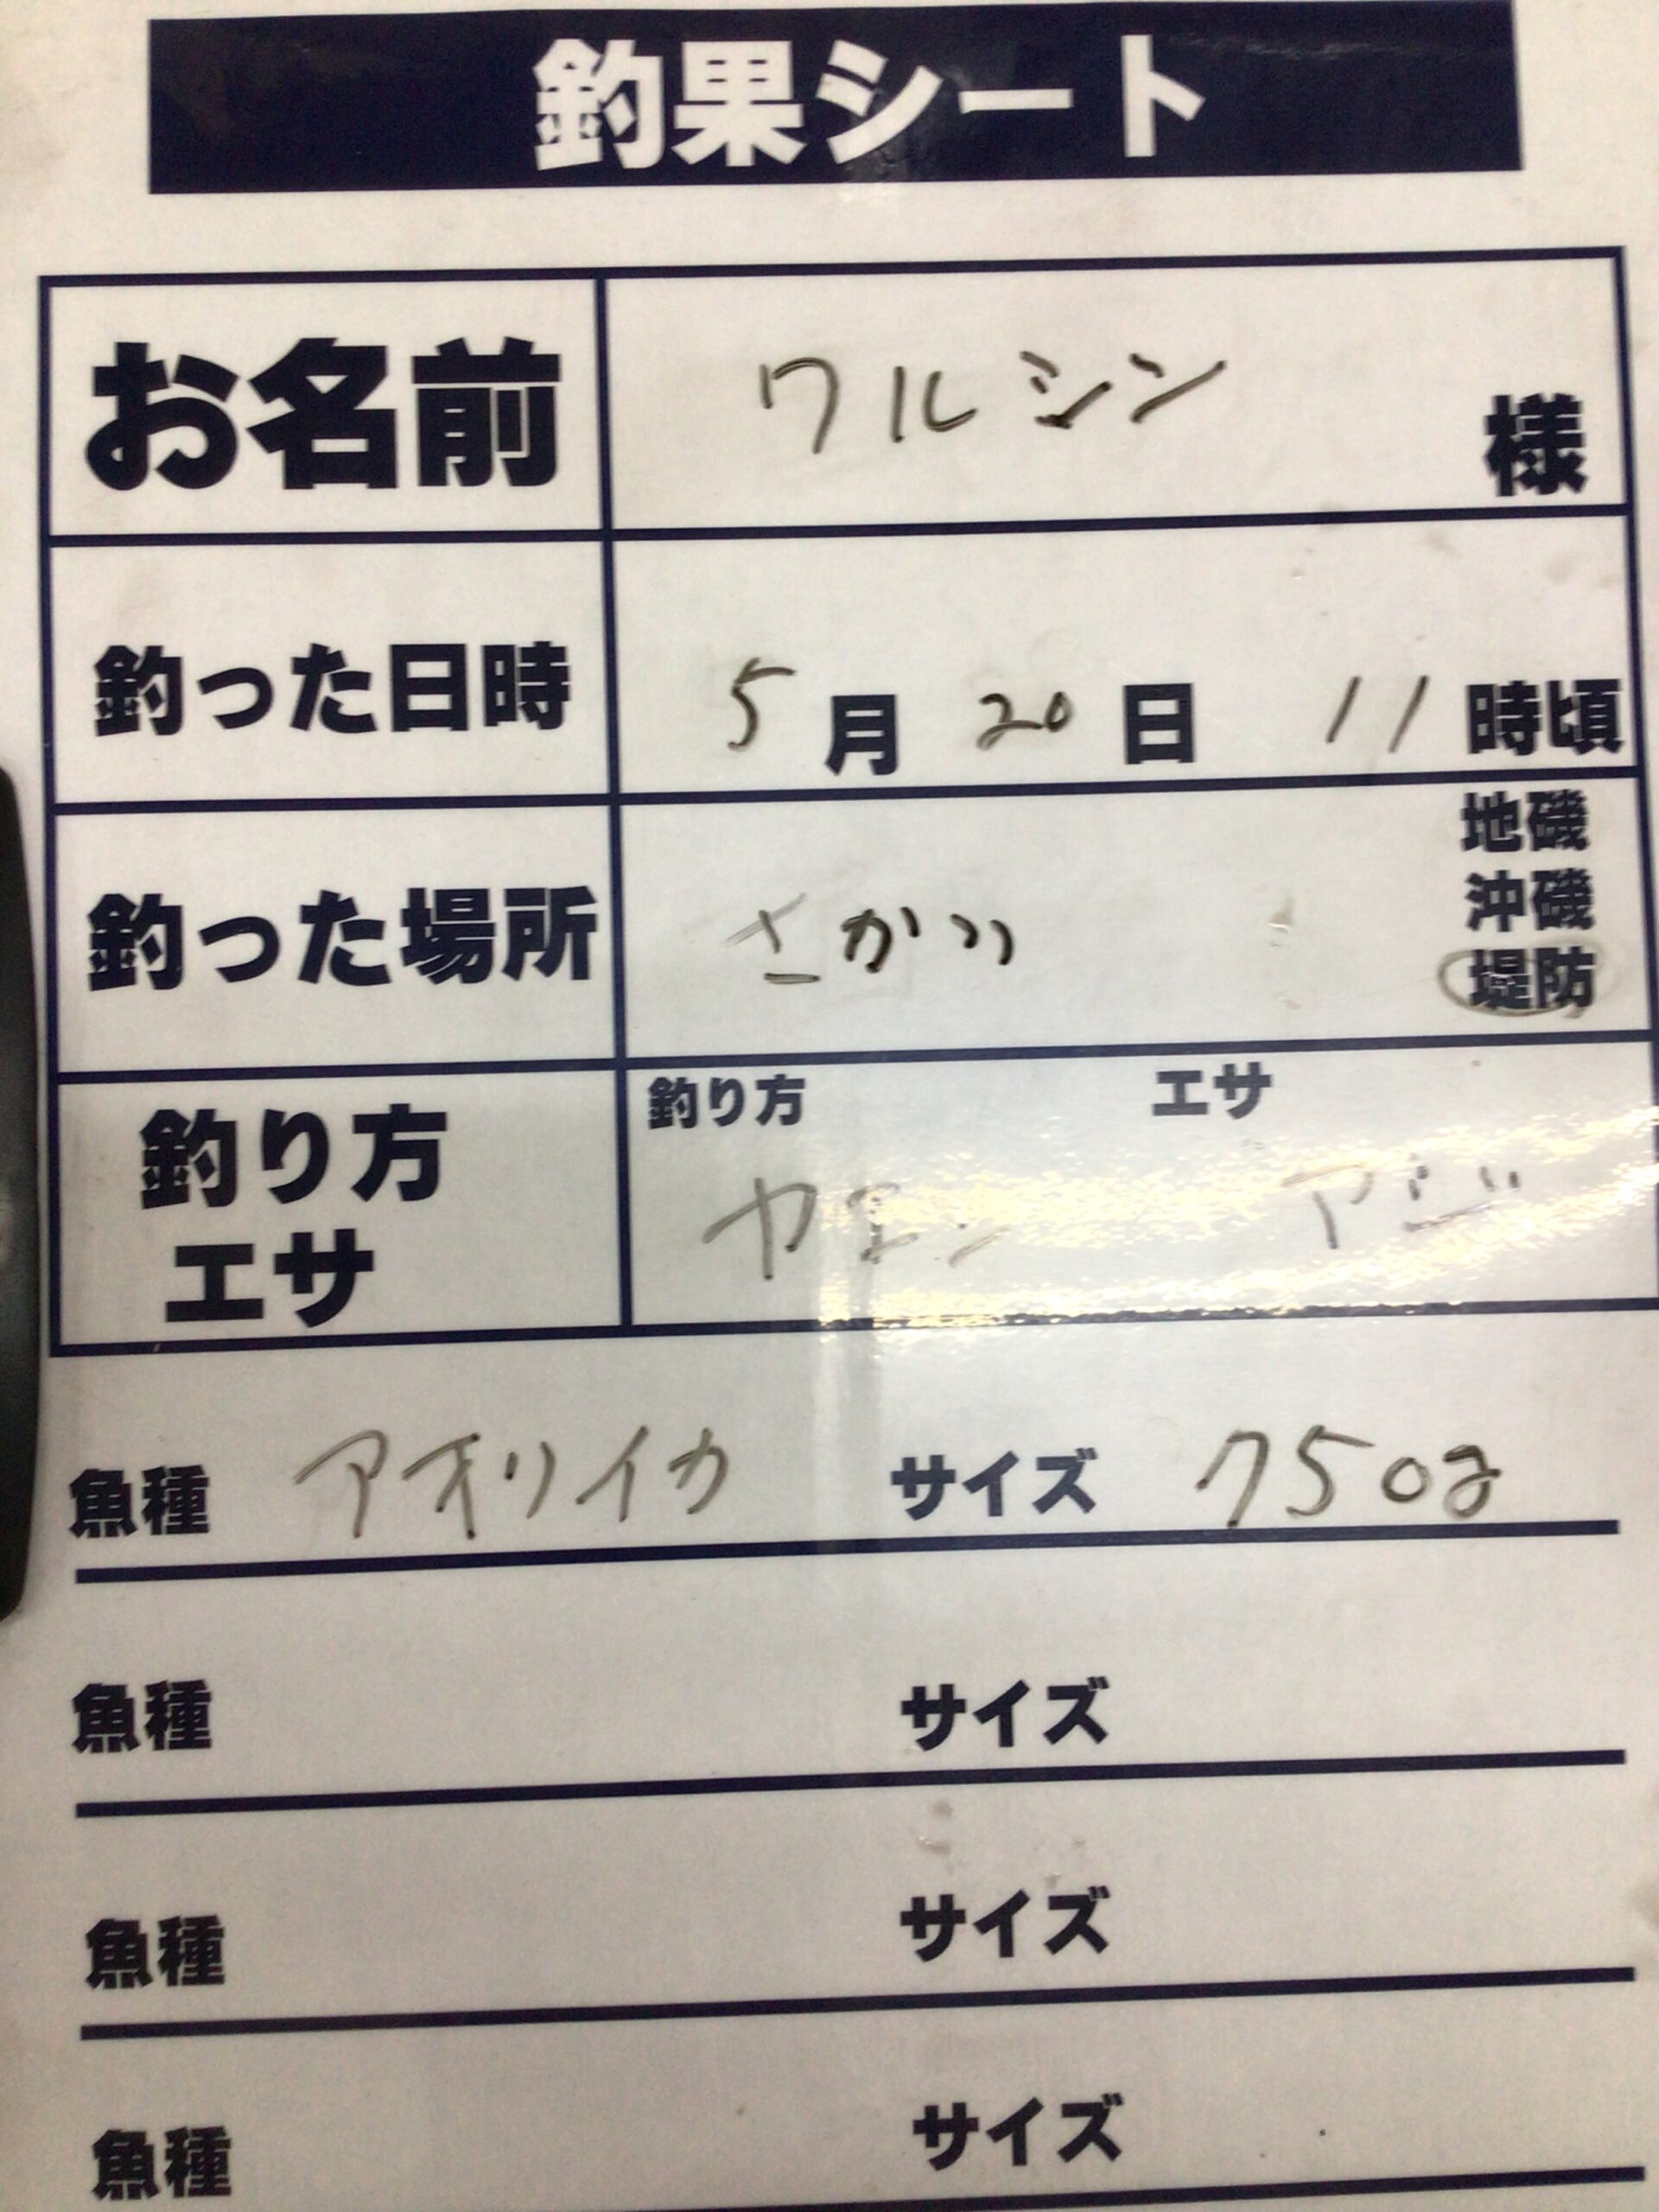 釣果シート
お名前 ワルシン 様
釣った日時 5月20日 11時頃
釣った場所 さかい 地磯
沖磯
堤防
釣り方 エサ
釣り方 ヤエン アジ
エサ
魚種 アオリイカ サイズ 750g
魚種 サイズ
魚種 サイズ
魚種 サイズ